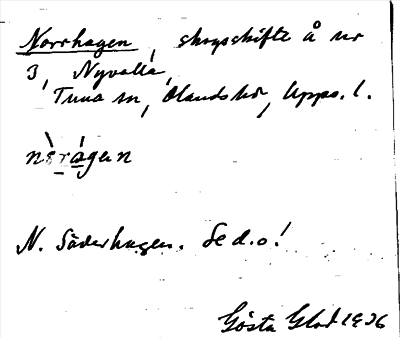 Norrhagen, skogsskifte å nr
3, Nyvalla,
Tuna sn, Olands hd, Upps. l.
nǝ̀rágen
N. Söderhagen. Se d.o!
Gösta Glad 1926